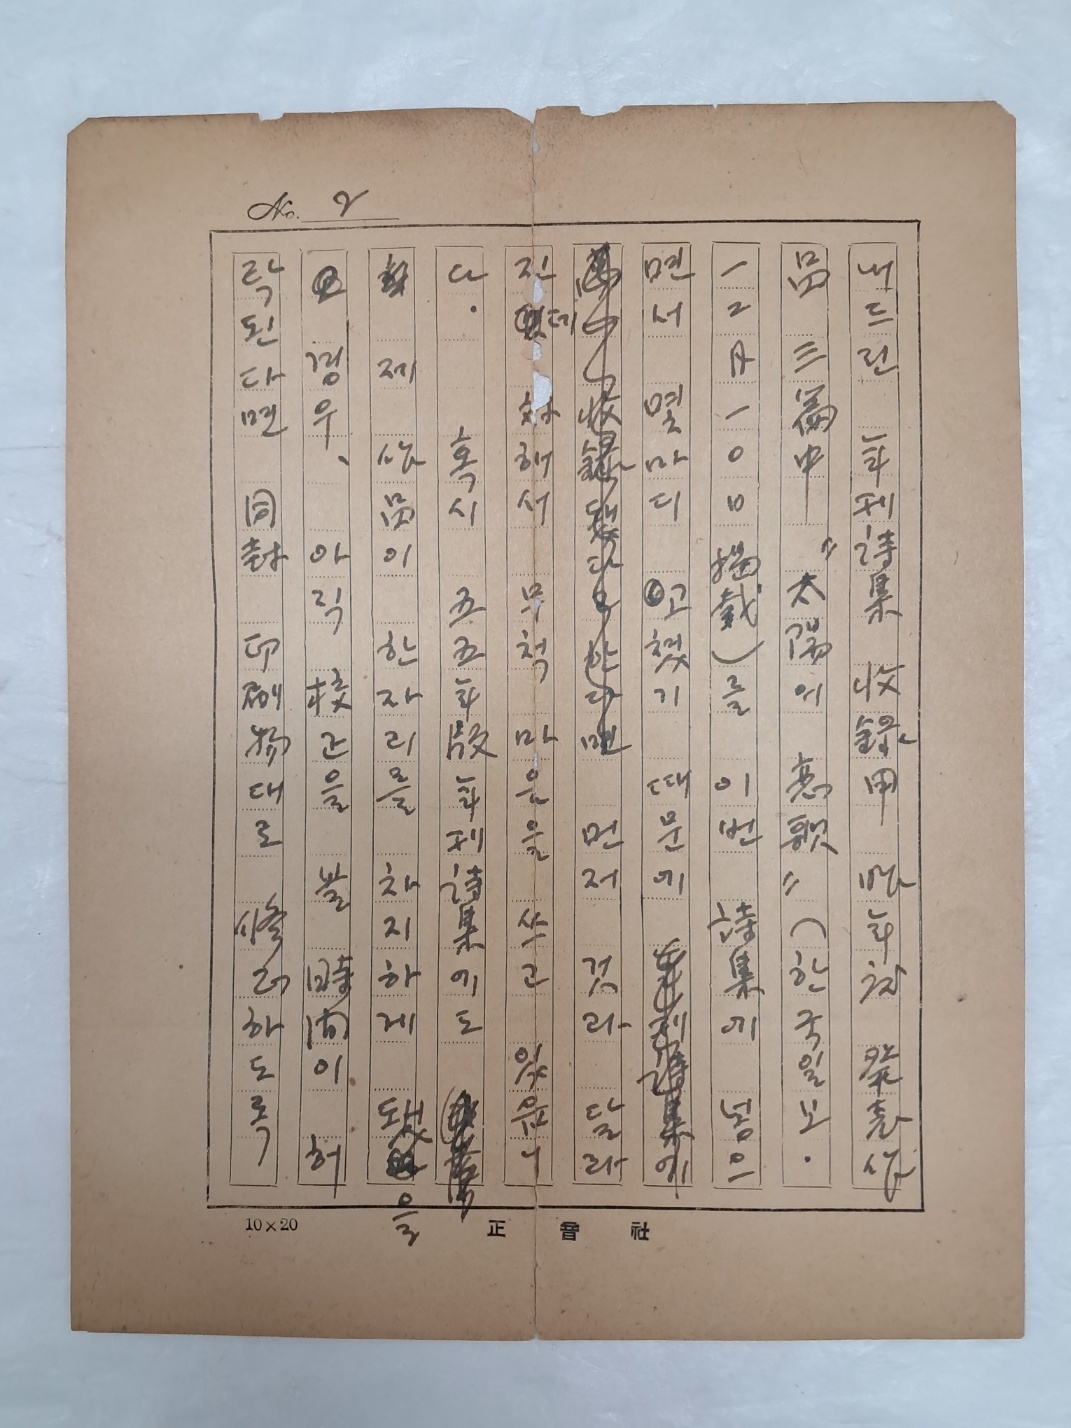 No. 2
내드린 年刊詩集 收錄用 昨年初 發表作
品 三篇中 "太陽에 悲歌" (한국일보.
一二月一〇日 揭載)를 이번 詩集에 넣으
면서 몇마디 고쳤기 때문에
먼저 것과 달라
진데 対해서 무척 마음을 쓰고 있읍니
다. 혹시 五五年版 年刊詩集에도
제 作品이 한자리를 차지하게 됐을
경우, 아직 校正을 볼 時間이 허
락된다면 同封 印刷物대로 修正하도록
10×20
正音社